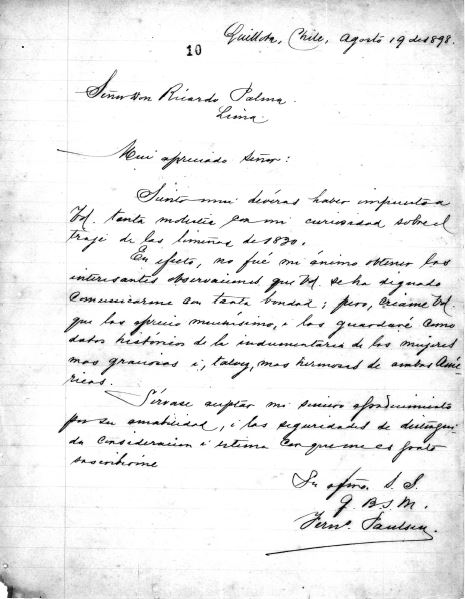 Quillota, Chile, Agosto 19 de 1898.
10
Señor Don Ricardo Palma.
Lima.
Mui apreciado Señor:
Siento mui deveras haber impuesto a
Vd. tanta molestia con mi curiosidad sobre el
traje de las limeñas de 1830.
En efecto, no fué mi ánimo obtener las
interesantes observaciones que Vd. se ha dignado
comunicarme con tanta bondad; pero, créame Vd.
que las aprecio muchísimo, i las guardaré como
datos históricos de la indumentaria de las mujeres
mas graciosas i, talvez, mas hermosas de ambas Amé-
ricas.
Sírvase aceptar mi sincero agradecimiento
por su amabilidad, i las seguridades de distingui-
da consideracion i estima con que me es grato
suscribirme
Su afmo. S. S.
Q. B. S. M.
Fern. Paulsen.